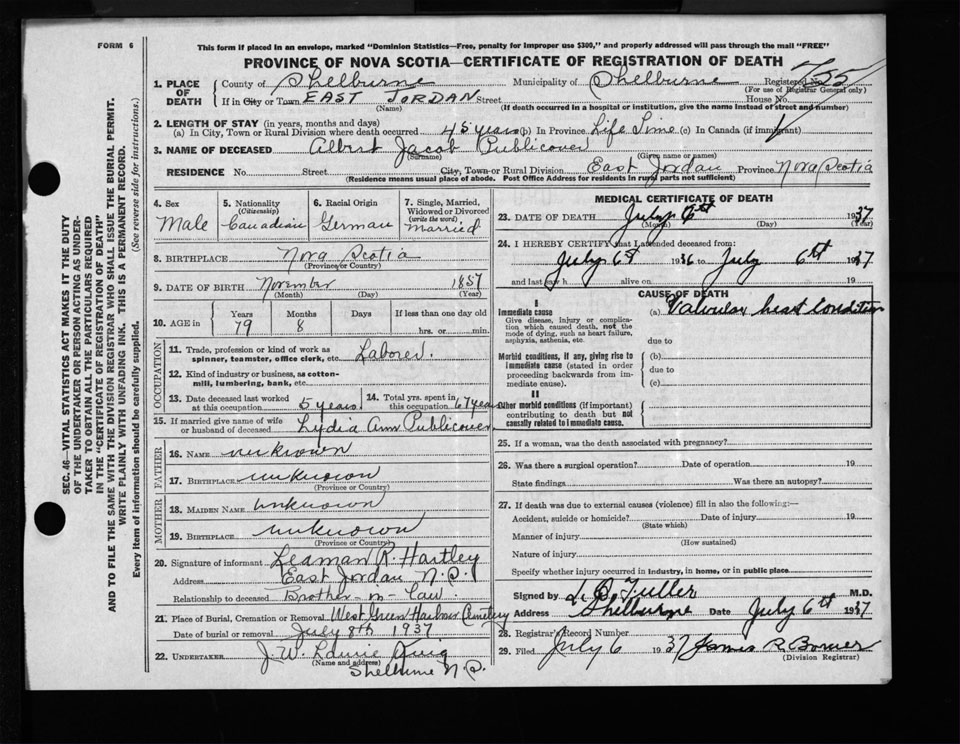 FORM 6
This form if placed in an envelope, marked "Dominion Statistics—Free, penalty for improper use $300," and properly addressed will pass through the mail "FREE"
PROVINCE OF NOVA SCOTIA—CERTIFICATE OF REGISTRATION OF DEATH
1. PLACE OF DEATH County of Shelburne Municipality of Shelburne Registered No. 725
(For use of Registrar General only)
If in City or Town EAST JORDAN Street House No.
(Name) (If death occurred in a hospital or institution, give the name instead of street and number)
2. LENGTH OF STAY (in years, months and days)
(a) In City, Town or Rural Division where death occurred 45 years (b) In Province Life Time (c) In Canada (if immigrant)
3. NAME OF DECEASED Albert Jacob Publicover
(Surname) (Given name or names)
RESIDENCE No. Street City, Town or Rural Division East Jordan Province Nova Scotia
(Residence means usual place of abode. Post Office Address for residents in rural parts not valid)
4. Sex Male
5. Nationality (Citizenship) Canadian
6. Racial Origin German
7. Single, Married, Widowed or Divorced (write the word) Married
8. BIRTHPLACE Nova Scotia
(Province or Country)
9. DATE OF BIRTH November 1857
(Month) (Day) (Year)
10. AGE in Years 79 Months 8 Days If less than one day old hrs. or min.
OCCUPATION
11. Trade, profession or kind of work as spinner, teamster, office clerk, etc. Laborer.
12. Kind of industry or business, as cotton-mill, lumbering, bank, etc.
13. Date deceased last worked at this occupation 5 years.
14. Total yrs. spent in this occupation 67 years
15. If married give name of wife or husband of deceased Lydia Ann Publicover
FATHER
16. NAME unknown
17. BIRTHPLACE unknown
(Province or Country)
MOTHER
18. MAIDEN NAME unknown
19. BIRTHPLACE unknown
(Province or Country)
20. Signature of informant Leaman R. Hartley
Address East Jordan N.S.
Relationship to deceased Brother-in-law
21. Place of Burial, Cremation or Removal West Green Harbour Cemetery
Date of burial or removal July 8th 1937
22. UNDERTAKER J. W. Laurie
(Name and address) Shelburne N.S.
MEDICAL CERTIFICATE OF DEATH
23. DATE OF DEATH July 1937
(Month) (Day) (Year)
24. I HEREBY CERTIFY that I attended deceased from:
July 6th 1936 to July 6th 1937
and last saw h alive on 19
CAUSE OF DEATH
I
Immediate cause (a) Valvular heart condition
Give disease, injury or complication which caused death, not the mode of dying, such as heart failure, asphyxia, asthenia, etc.
due to
Morbid conditions, if any, giving rise to immediate cause (stated in order proceeding backwards from immediate cause).
(b)
due to
(c)
II
Other morbid conditions (if important) contributing to death but not causally related to immediate cause.
25. If a woman, was the death associated with pregnancy?
26. Was there a surgical operation? Date of operation 19
State findings Was there an autopsy?
27. If death was due to external causes (violence) fill in also the following:—
Accident, suicide or homicide? Date of injury 19
(State which)
Manner of injury
(How sustained)
Nature of injury
Specify whether injury occurred in industry, in home, or in public place
Signed by L. O. Fuller M.D.
Address Shelburne Date July 6th 1937
28. Registrar's Record Number
29. Filed July 6 1937 James R. Bower
(Division Registrar)
SEC. 46—VITAL STATISTICS ACT MAKES IT THE DUTY
OF THE UNDERTAKER OR PERSON ACTING AS UNDER-
TAKER TO OBTAIN ALL THE PARTICULARS REQUIRED
IN THE "CERTIFICATE OF REGISTRATION OF DEATH"
AND TO FILE THE SAME WITH THE DIVISION REGISTRAR WHO SHALL ISSUE THE BURIAL PERMIT.
WRITE PLAINLY WITH UNFADING INK. THIS IS A PERMANENT RECORD.
Every item of information should be carefully supplied. (See reverse side for instructions.)